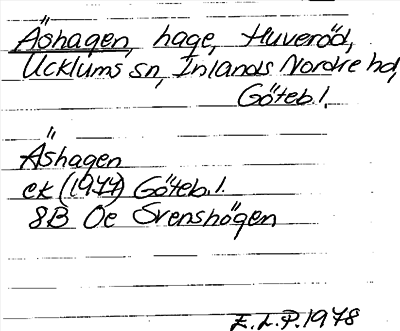 Åshagen, hage, Huveröd,
Ucklums sn, Inlands Nordre hd,
Göteb. l.
Åshagen
ek (1977) Göteb. l.
8B 0e Svenshögen
E. L. P. 1978